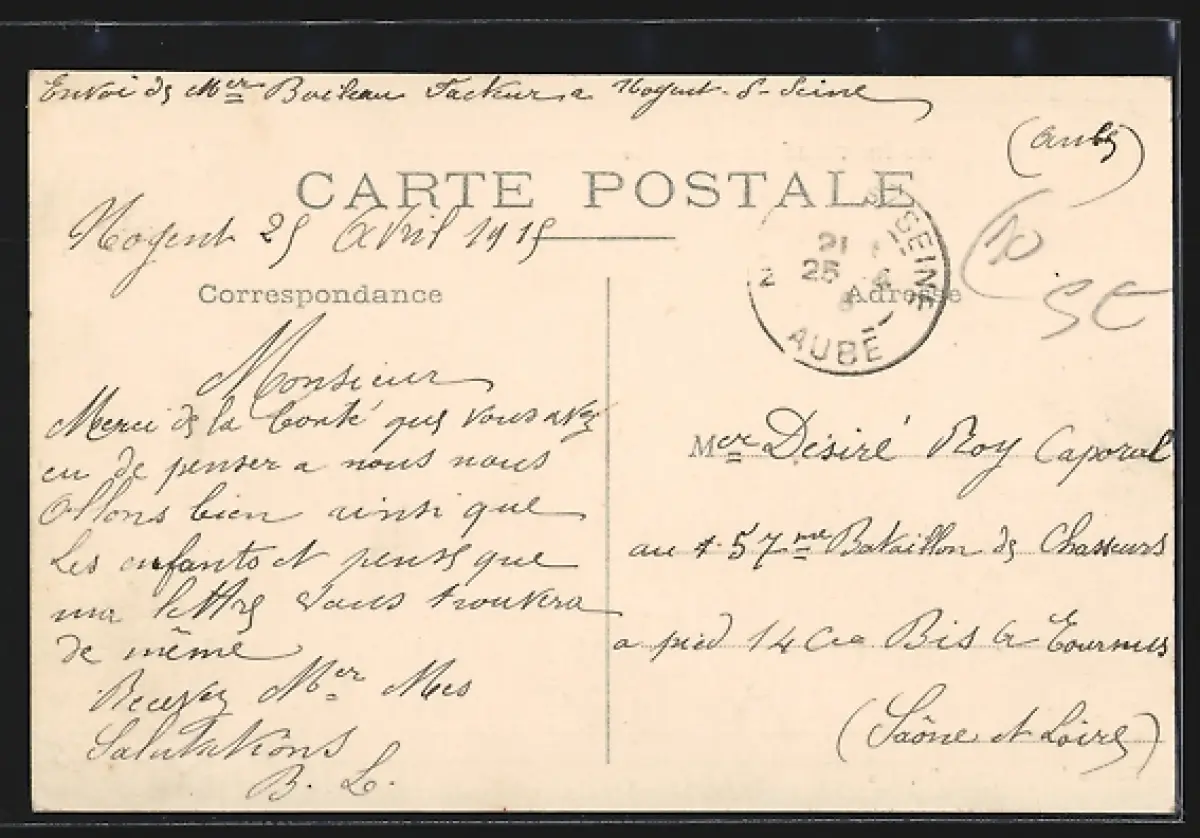 Envoi de Mer Boileau Facteur a Nogent-S-Seine
(Aube)
CARTE POSTALE
Nogent 25 Avril 1915
SEINE
21
2 25 4
AUBE
Correspondance
Adresse
10
SE
Monsieur
Merci de la bonté que vous avez
eu de penser a nous nous
Allons bien ainsi que
Les enfants et pense que
ma lettre vous trouvera
de même
Recevez Mer Mes
Salutations
B. L.
Mer Désiré Roy Caporal
au 57me Bataillon de Chasseurs
a pied 14 Cie Bis a Tournus
(Saône et Loire)